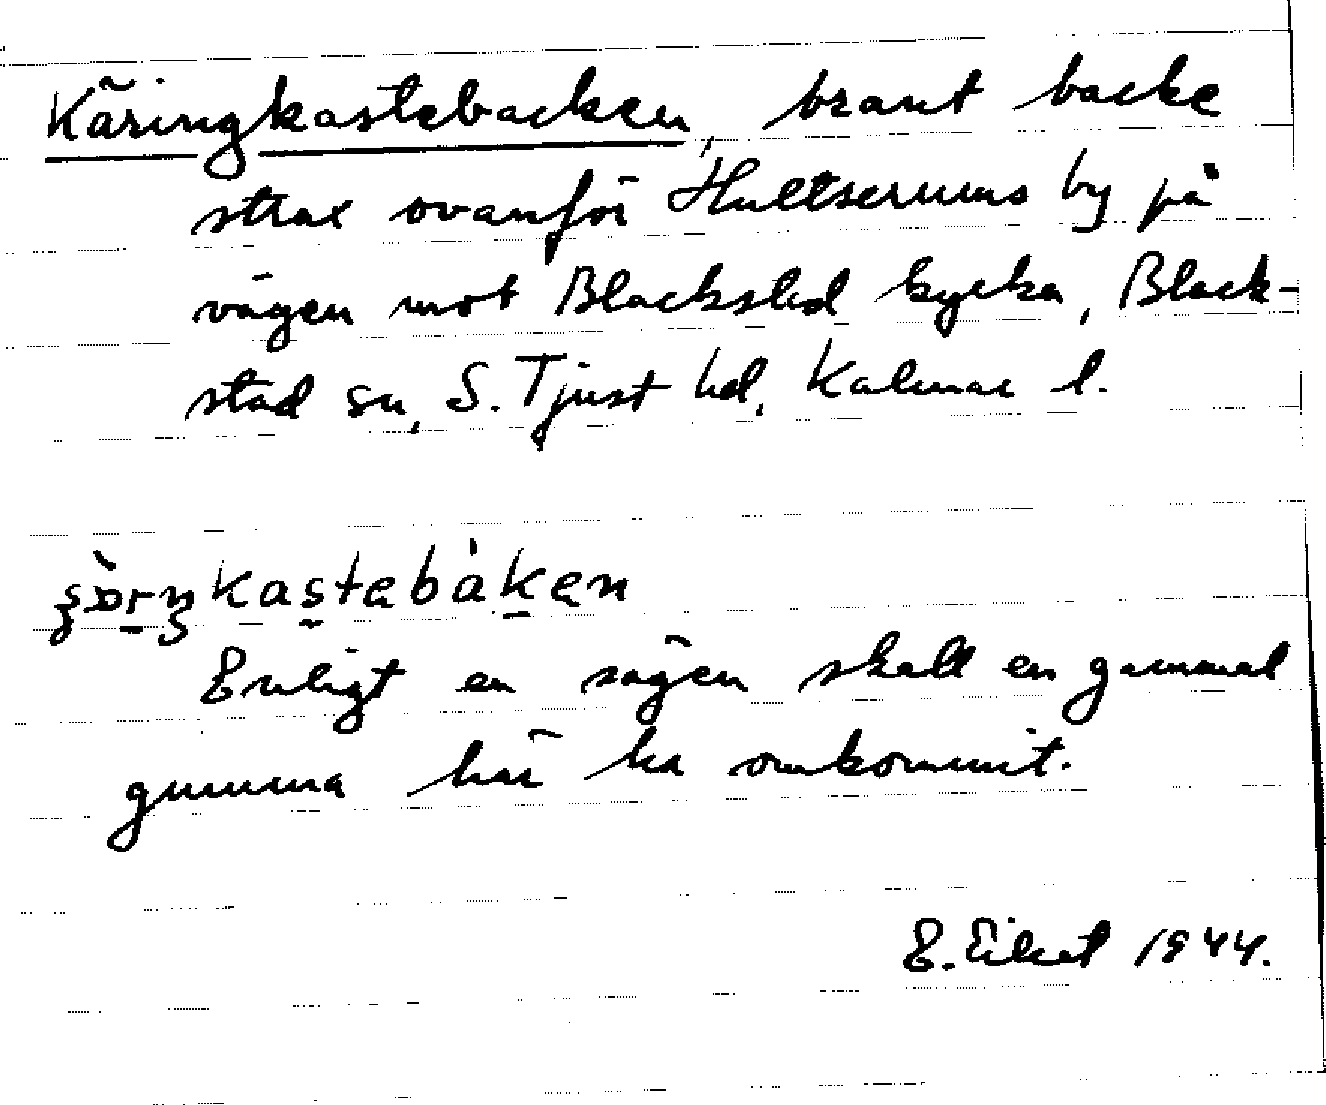 Käringkastebacken, brant backe
strax ovanför Hultserums by på
vägen mot Blackstad kyrka, Black-
stad sn, S. Tjust hd, Kalmar l.
kastebàken
Enligt en sägen skall en gammal
gumma här ha omkommit.
E. Eiket 1944.